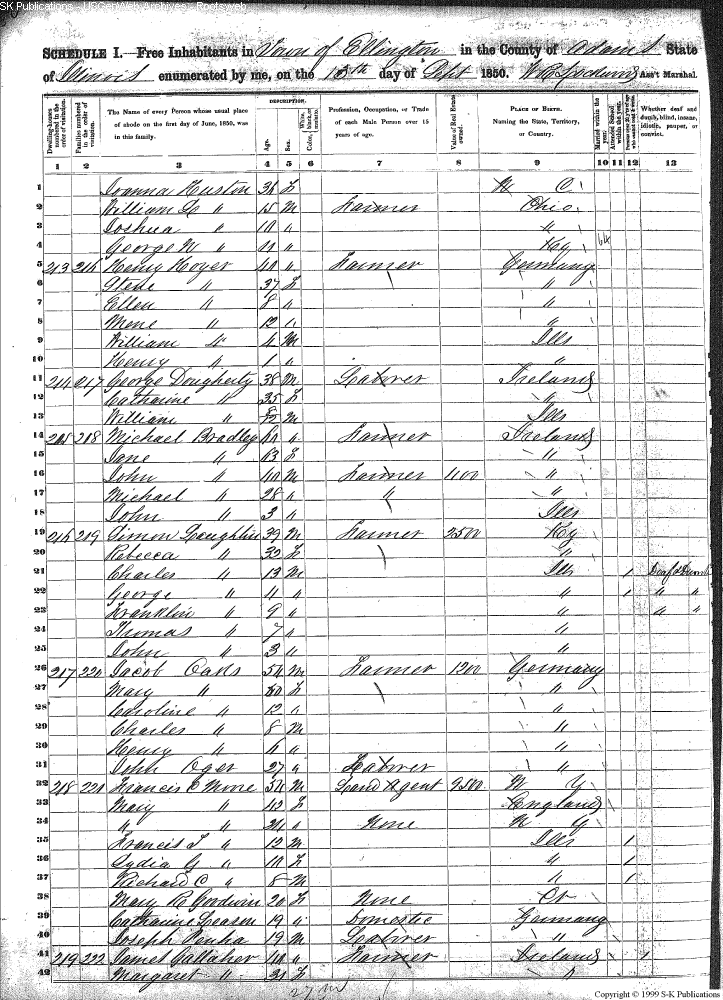 SK Publications - USGenWeb Archives - Rootsweb
SCHEDULE I.—Free Inhabitants in Town of Ellington in the County of Adams State
of Illinois enumerated by me, on the 13th day of Sept 1850. Ass't Marshal.
Dwelling-houses numbered in the order of visitation.
Families numbered in the order of visitation.
The Name of every Person whose usual place of abode on the first day of June, 1850, was in this family.
DESCRIPTION.
Age.
Sex.
White, Color, black, or mulatto.
Profession, Occupation, or Trade of each Male Person over 15 years of age.
Value of Real Estate owned.
PLACE OF BIRTH. Naming the State, Territory, or Country.
Married within the year.
Attended School within the year.
Whether deaf and dumb, blind, insane, idiotic, pauper, or convict.
1 2 3 4 5 6 7 8 9 10 11 12 13
1 Joanna Huston 36 f N C
2 William " 15 m Farmer Ohio
3 Joshua " 10 " "
4 George W " 11 " Ky
5 213 216 Henry Hoyer 40 " Farmer Germany
6 " 37 f "
7 Ellen " 8 " "
8 Mene " 12 " "
9 William " 4 m Ills
10 Henry " 1 " "
11 214 217 George Dougherty 38 m Laborer Ireland
12 Catharine " 35 f "
13 William " m Ills
14 215 218 Michael Bradley " Farmer Ireland
15 Jane " 63 f "
16 John " 40 m Farmer 1100 "
17 Michael " 28 " " "
18 John " 3 " Ills
19 216 219 Simon Loughlin 39 m Farmer 2500 Ky
20 Rebecca " 32 f "
21 Charles " 13 m Ills 1 Deaf & Dumb
22 George " 11 " " 1 " "
23 Franklin " 9 " " " "
24 Thomas " 7 " "
25 John " 3 " "
26 217 220 Jacob Oaks 54 m Farmer 1200 Germany
27 Mary " f "
28 Caroline " 12 " "
29 Charles " 8 m "
30 Henry " " "
31 John Oger 27 " Laborer "
32 218 221 Francis C Moore m Land Agent 9500 N Y
33 Mary " 42 f England
34 " " 21 " None N Y
35 Francis T " 12 m Ills 1
36 Lydia G " 10 f " 1
37 Richard C " 8 m " 1
38 Mary R Goodwin 20 f None
39 Catharine Leason 19 " Domestic Germany
40 Joseph Penha 19 m Laborer "
41 219 222 James Gallaher 40 " Farmer Ireland 1
42 Margaret " f "
27 m
Copyright © 1999 S-K Publications